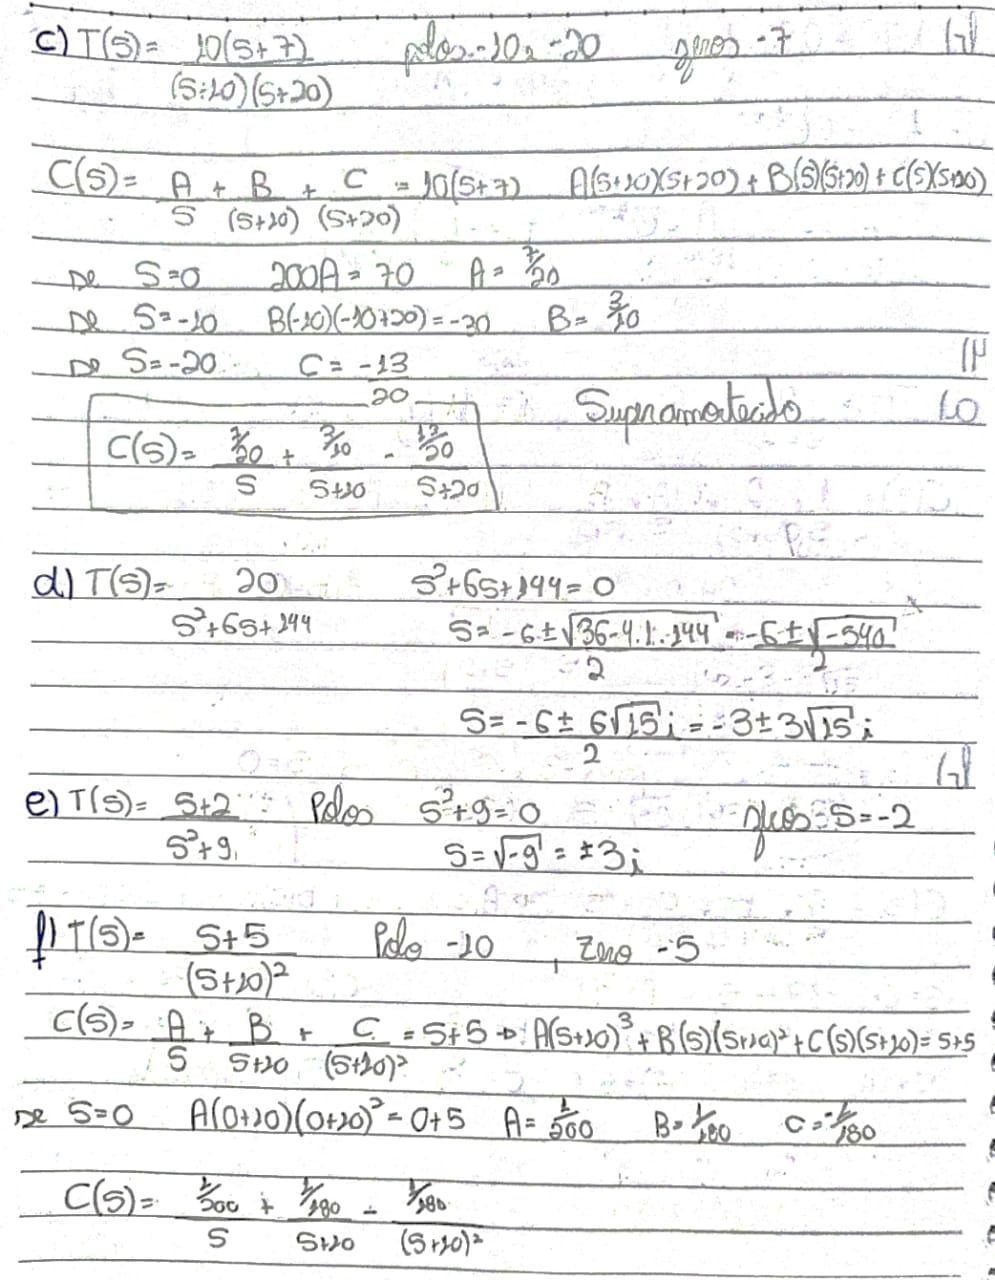 c) T(S) = 10(S+7) / (S+10)(S+20) polos -10 e -20 zeros -7
C(S) = A/S + B/(S+10) + C/(S+20) = 10(S+7) A(S+10)(S+20) + B(S)(S+20) + C(S)(S+10)
De S=0 200A = 70 A = 7/20
De S=-10 B(-10)(-10+20) = -30 B = 3/10
De S=-20 C = -13/20
Supramortecido
C(S) = 7/20/S + 3/10/S+10 - 13/20/S+20
d) T(S) = 20 / S²+6S+144 S²+6S+144 = 0
S = -6 ± √36-4.1.144 / 2 = -6 ± √-540 / 2
S = -6 ± 6√15 i / 2 = -3 ± 3√15 i
e) T(S) = S+2 / S²+9 Polos S²+9=0 zeros S=-2
S = √-9 = ±3i
f) T(S) = S+5 / (S+10)² Polo -10, Zero -5
C(S) = A/S + B/S+10 + C/(S+10)² = S+5 → A(S+10)³ + B(S)(S+10)² + C(S)(S+10) = S+5
De S=0 A(0+10)(0+10)² = 0+5 A = 1/200 B = 1/180 C = -1/180
C(S) = 1/200/S + 1/180/S+10 - 1/180/(S+10)²